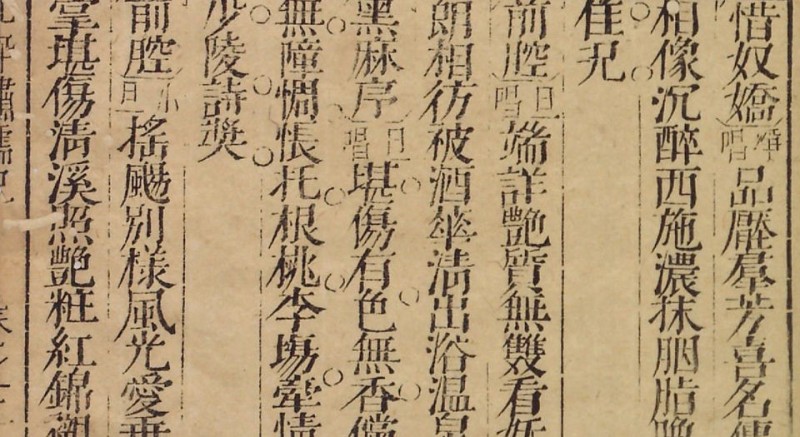 惜奴嬌 唱 品壓羣芳喜名
相像沉醉西施濃抹胭脂
崔兒
前腔 旦唱 端詳艷質無雙看妖
朗相彷被酒華淸出浴温泉
黑麻序 旦唱 堪傷有色無香
無障惆悵托根桃李塲牽情
少陵詩奬
前腔 小旦 搖颺別樣風光愛
堪傷淸溪照艷粧紅錦